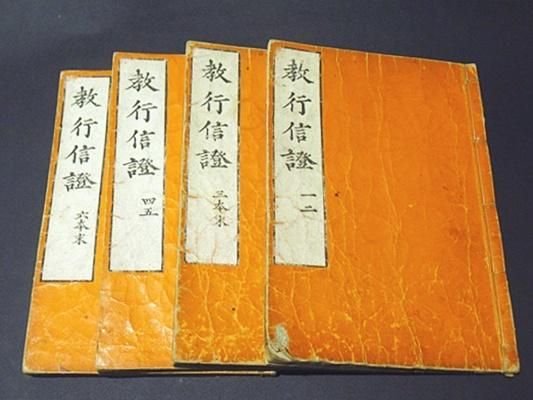 教行信證 一二
教行信證 三本末
教行信證 四五
教行信證 六本末